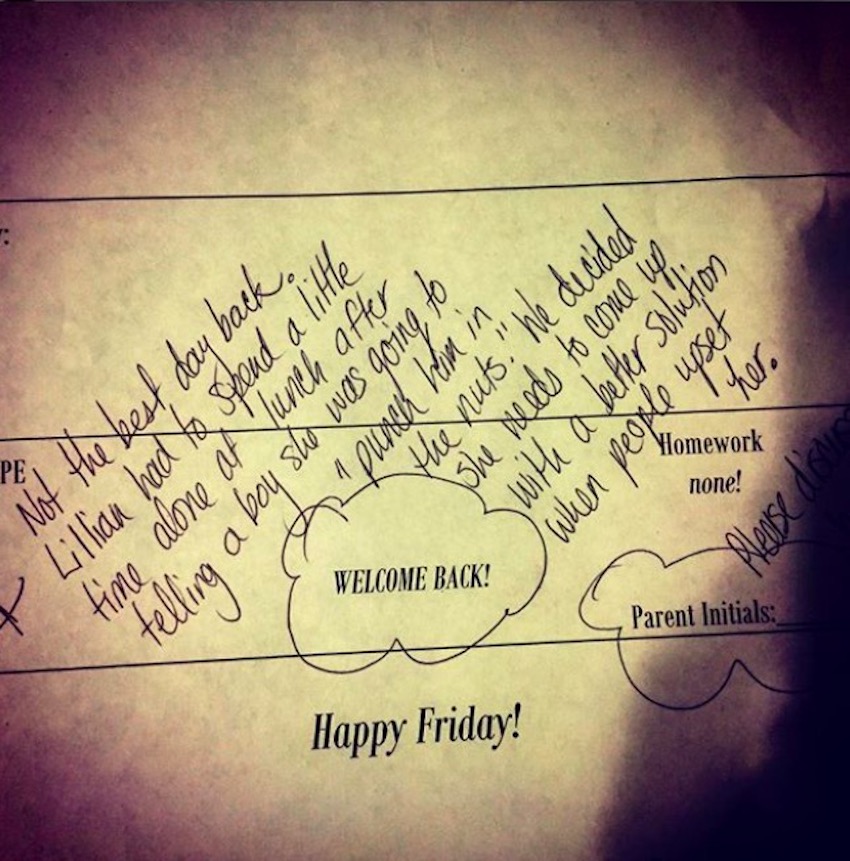 Not the best day back.
Lillian had to spend a little
time alone at lunch after
telling a boy she was going to
"punch him in
the nuts." We decided
she needs to come up
with a better solution
when people upset
her.
PE
Homework
none!
Please
WELCOME BACK!
Parent Initials:
Happy Friday!